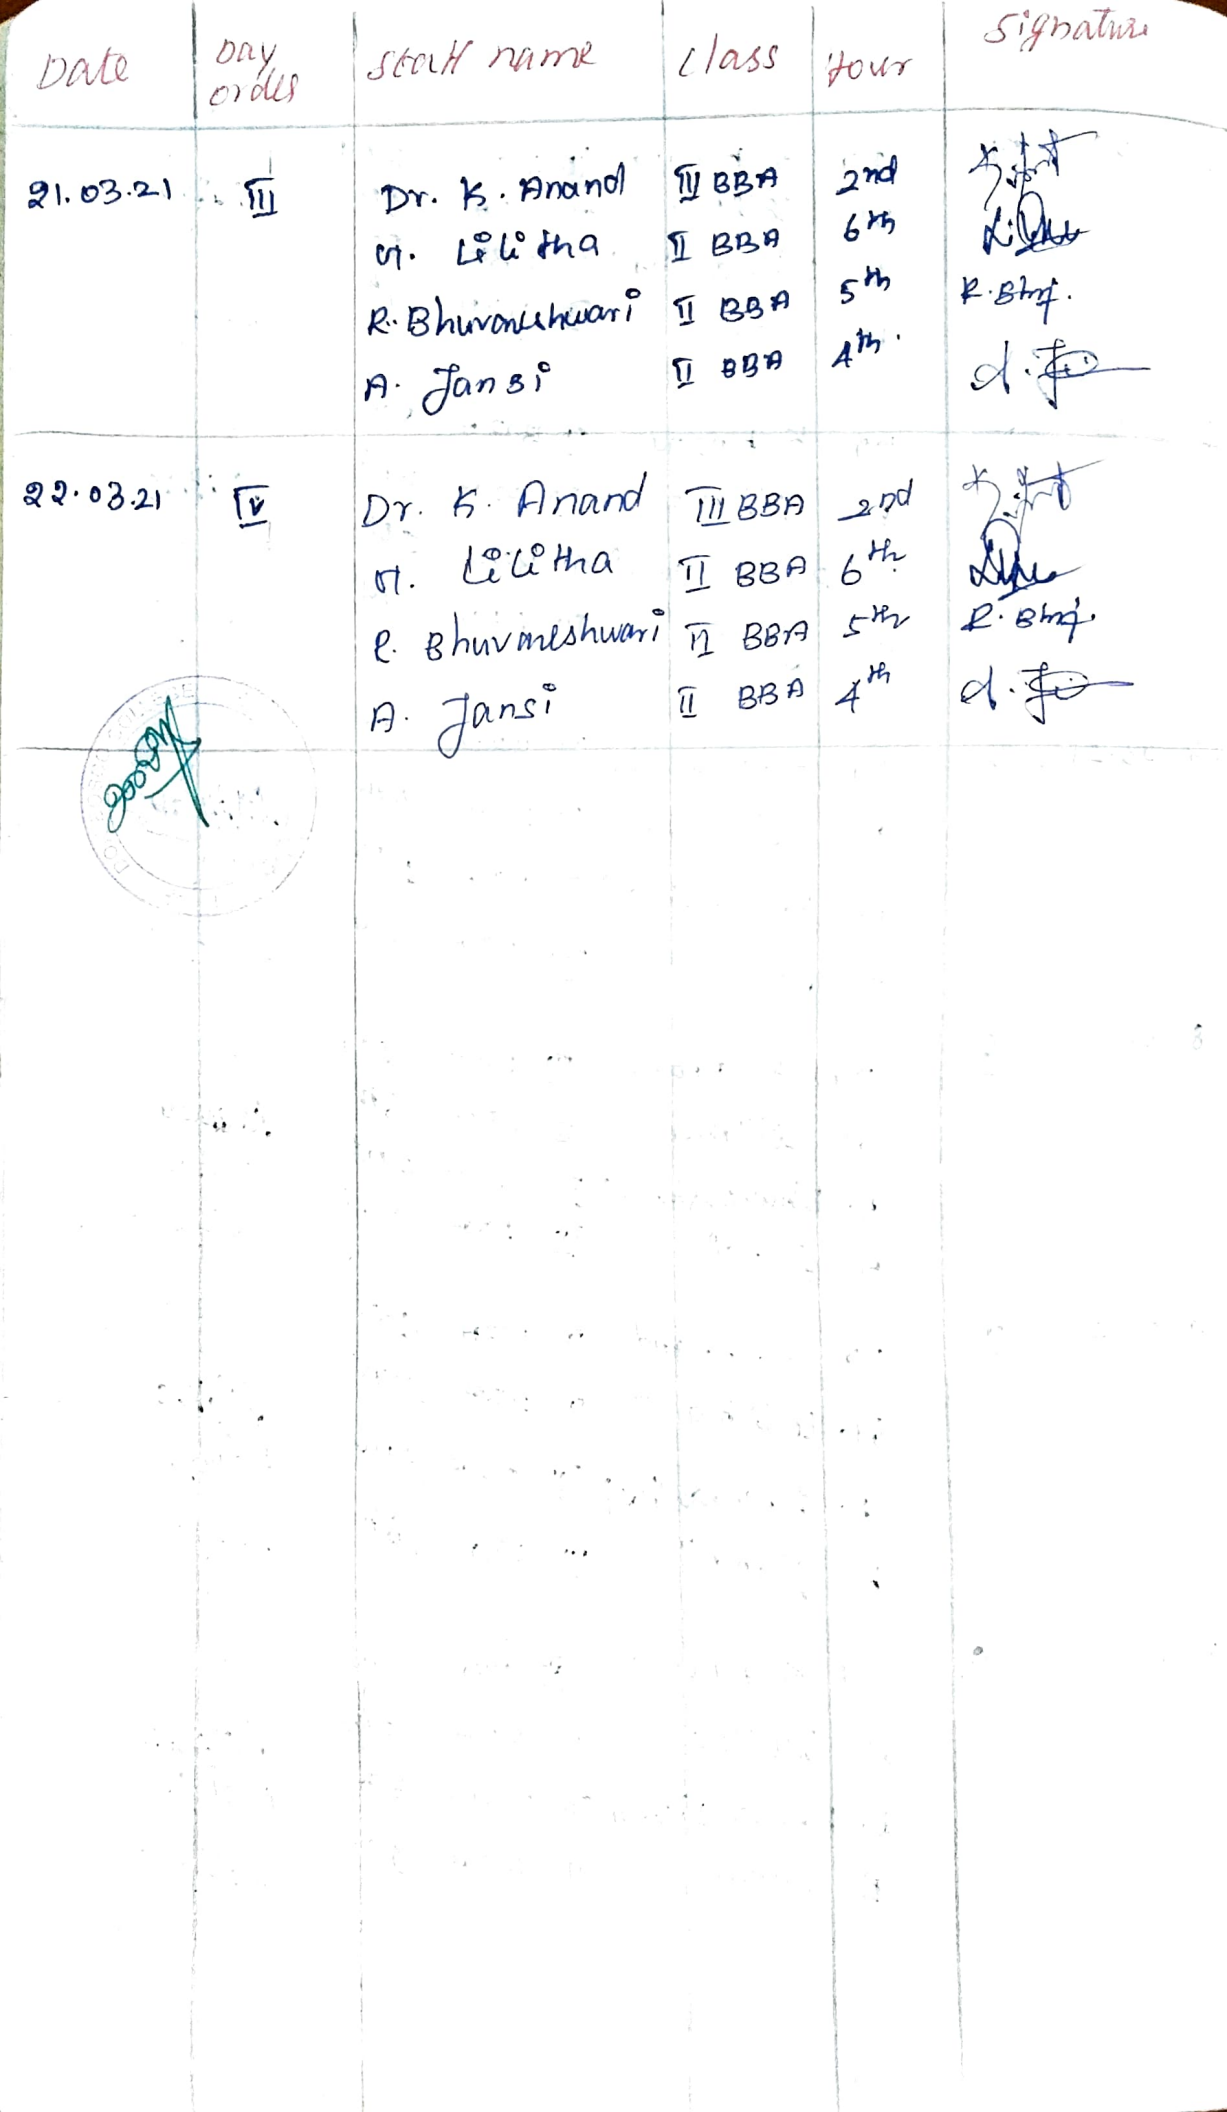 Date Day order Staff name Class Hour Signature
21.03.21 III Dr. K. Anand III BBA 2nd
M. Lilitha II BBA 6th
R. Bhuvaneshwari II BBA 5th
A. Jansi II BBA 4th.
22.03.21 IV Dr. K. Anand III BBA 2nd
M. Lilitha II BBA 6th
R. Bhuvaneshwari II BBA 5th
A. Jansi II BBA 4th